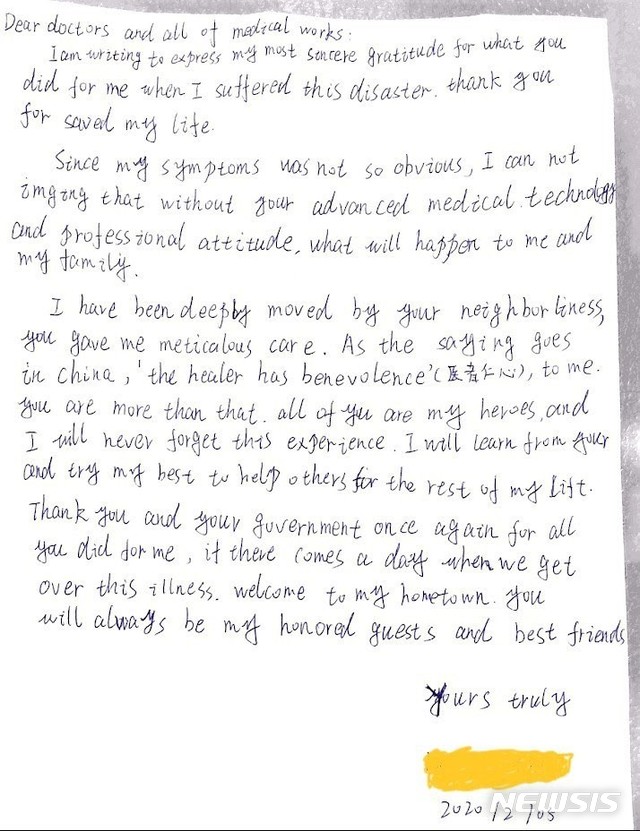 Dear doctors and all of medical works:
I am writing to express my most sincere gratitude for what you
did for me when I suffered this disaster. thank you
for saved my life.
Since my symptoms was not so obvious, I can not
imging that without your advanced medical technology
and professional attitude, what will happen to me and
my family.
I have been deeply moved by your neighborliness,
you gave me meticalous care. As the saying goes
in china, 'the healer has benevolence'(医者仁心), to me.
you are more than that. all of you are my heroes, and
I will never forget this experience. I will learn from your
and try my best to help others for the rest of my lift.
Thank you and your guvernment once again for all
you did for me, if there comes a day when we get
over this illness. welcome to my hometown. you
will always be my honored guests and best friends
Yours truly
NEWSIS
2020/2/05